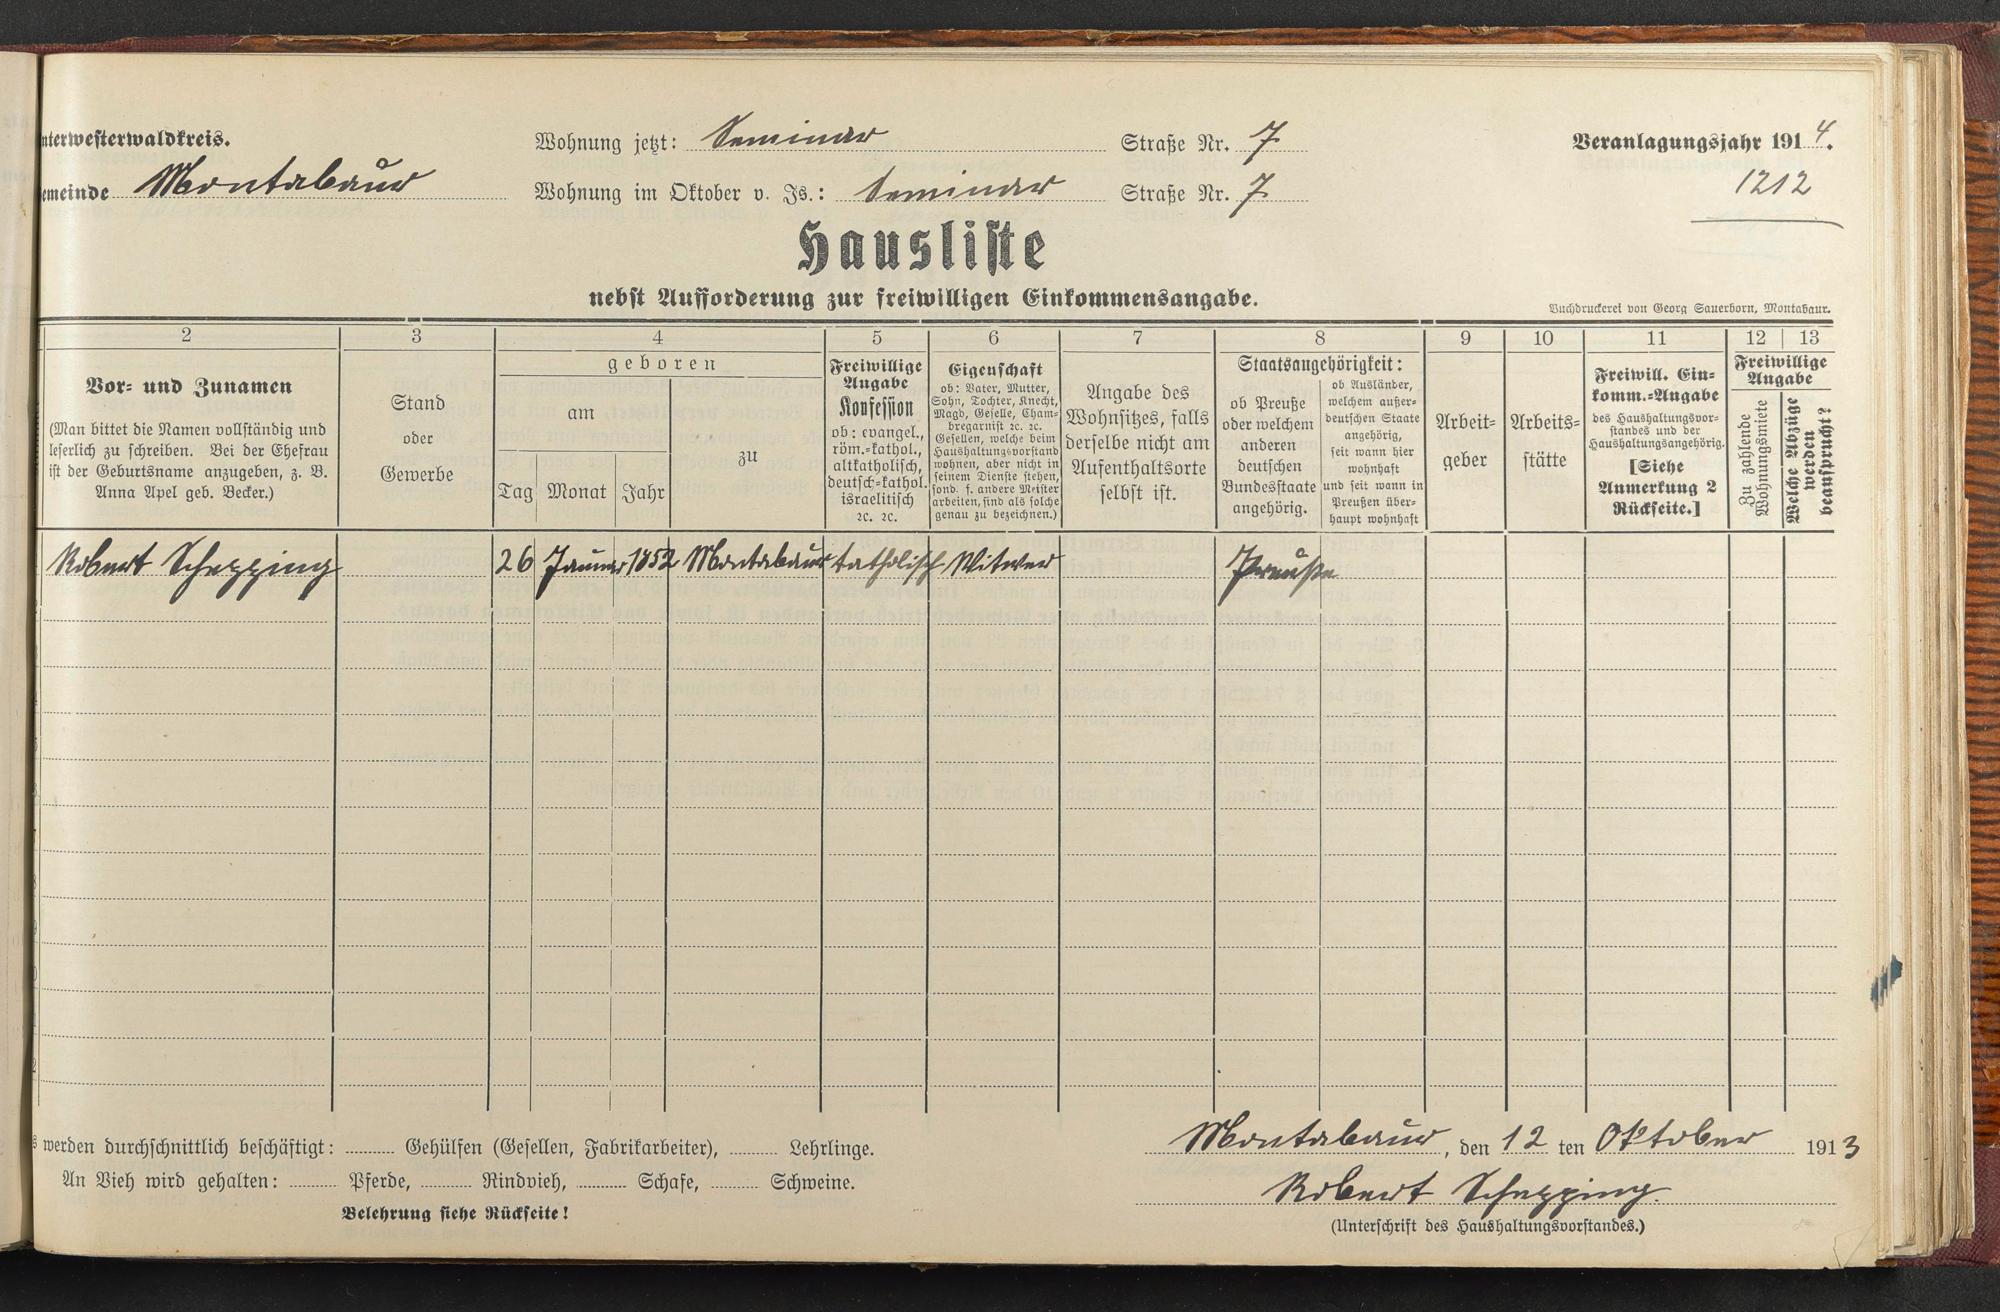 nterwesterwaldkreis.
Wohnung jetzt: Seminar Straße Nr. 7
Veranlagungsjahr 1914.
emeinde Montabaur
Wohnung im Oktober v. Js.: Seminar Straße Nr. 7
1212
Hausliste
nebst Aufforderung zur freiwilligen Einkommensangabe.
Buchdruckerei von Georg Sauerborn, Montabaur.
2 3 4 5 6 7 8 9 10 11 12 13
Vor- und Zunamen
(Man bittet die Namen vollständig und
leserlich zu schreiben. Bei der Ehefrau
ist der Geburtsname anzugeben, z. B.
Anna Apel geb. Becker.)
Stand
oder
Gewerbe
geboren
am
Tag Monat Jahr
zu
Freiwillige
Angabe
Konfession
ob: evangel.,
röm.-kathol.,
altkatholisch,
deutsch-kathol.
israelitisch
2c. 2c.
Eigenschaft
ob: Vater, Mutter,
Sohn, Tochter, Knecht,
Magd, Geselle, Cham-
bregarnist 2c. 2c.
Gesellen, welche beim
Haushaltungsvorstand
wohnen, aber nicht in
seinem Dienste stehen,
sond. f. andere Meister
arbeiten, sind als solche
genau zu bezeichnen.)
Angabe des
Wohnsitzes, falls
derselbe nicht am
Aufenthaltsorte
selbst ist.
Staatsangehörigkeit:
ob Preuße
oder welchem
anderen
deutschen
Bundesstaate
angehörig.
ob Ausländer,
welchem außer-
deutschen Staate
angehörig,
seit wann hier
wohnhaft
und seit wann in
Preußen über-
haupt wohnhaft
Arbeit-
geber
Arbeits-
stätte
Freiwill. Ein-
komm.-Angabe
des Haushaltungsvor-
standes und der
Haushaltungsangehörig.
[Siehe
Anmerkung 2
Rückseite.]
Freiwillige
Angabe
Zu zahlende
Wohnungsmiete
Welche Abzüge
werden
beansprucht?
Robert Schepping 26 Januar 1852 Montabaur katholisch Witwer Preuße
werden durchschnittlich beschäftigt: Gehülfen (Gesellen, Fabrikarbeiter), Lehrlinge.
An Vieh wird gehalten: Pferde, Rindvieh, Schafe, Schweine.
Belehrung siehe Rückseite!
Montabaur, den 12 ten Oktober 1913
Robert Schepping.
(Unterschrift des Haushaltungsvorstandes.)